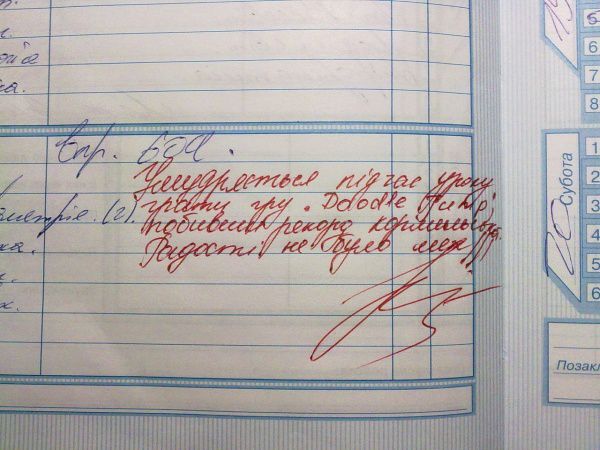 Впр. 609.
Умудряється під час уроку
грати гру "Doodle Jump",
побивши рекорд
Радості не було меж
(2).
ка.
19
5
6
7
8
20
Субота
1
2
3
4
5
6
Позакл